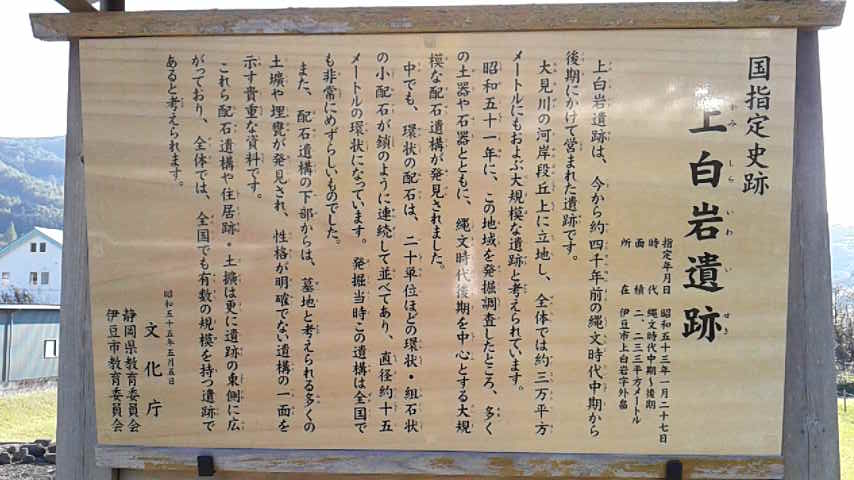 国指定史跡
上白岩遺跡
かみしらいわいせき
指定年月日 昭和五十三年一月二十七日
時代 縄文時代中期~後期
面積 二、二三三平方メートル
所在 伊豆市上白岩字外畠
上白岩遺跡は、今から約四千年前の縄文時代中期から
後期にかけて営まれた遺跡です。
大見川の河岸段丘上に立地し、全体では約三万平方
メートルにもおよぶ大規模な遺跡と考えられています。
昭和五十一年に、この地域を発掘調査したところ、多く
の土器や石器とともに、縄文時代後期を中心とする大規
模な配石遺構が発見されました。
中でも、環状の配石は、二十単位ほどの環状・組石状
の小配石が鎖のように連続して並べてあり、直径約十五
メートルの環状になっています。発掘当時この遺構は全国で
も非常にめずらしいものでした。
また、配石遺構の下部からは、墓地と考えられる多くの
土壙や埋甕が発見され、性格が明確でない遺構の一面を
示す貴重な資料です。
これら配石遺構や住居跡・土壙は更に遺跡の東側に広
がっており、全体では、全国でも有数の規模を持つ遺跡で
あると考えられます。
昭和五十五年五月五日
文化庁
静岡県教育委員会
伊豆市教育委員会